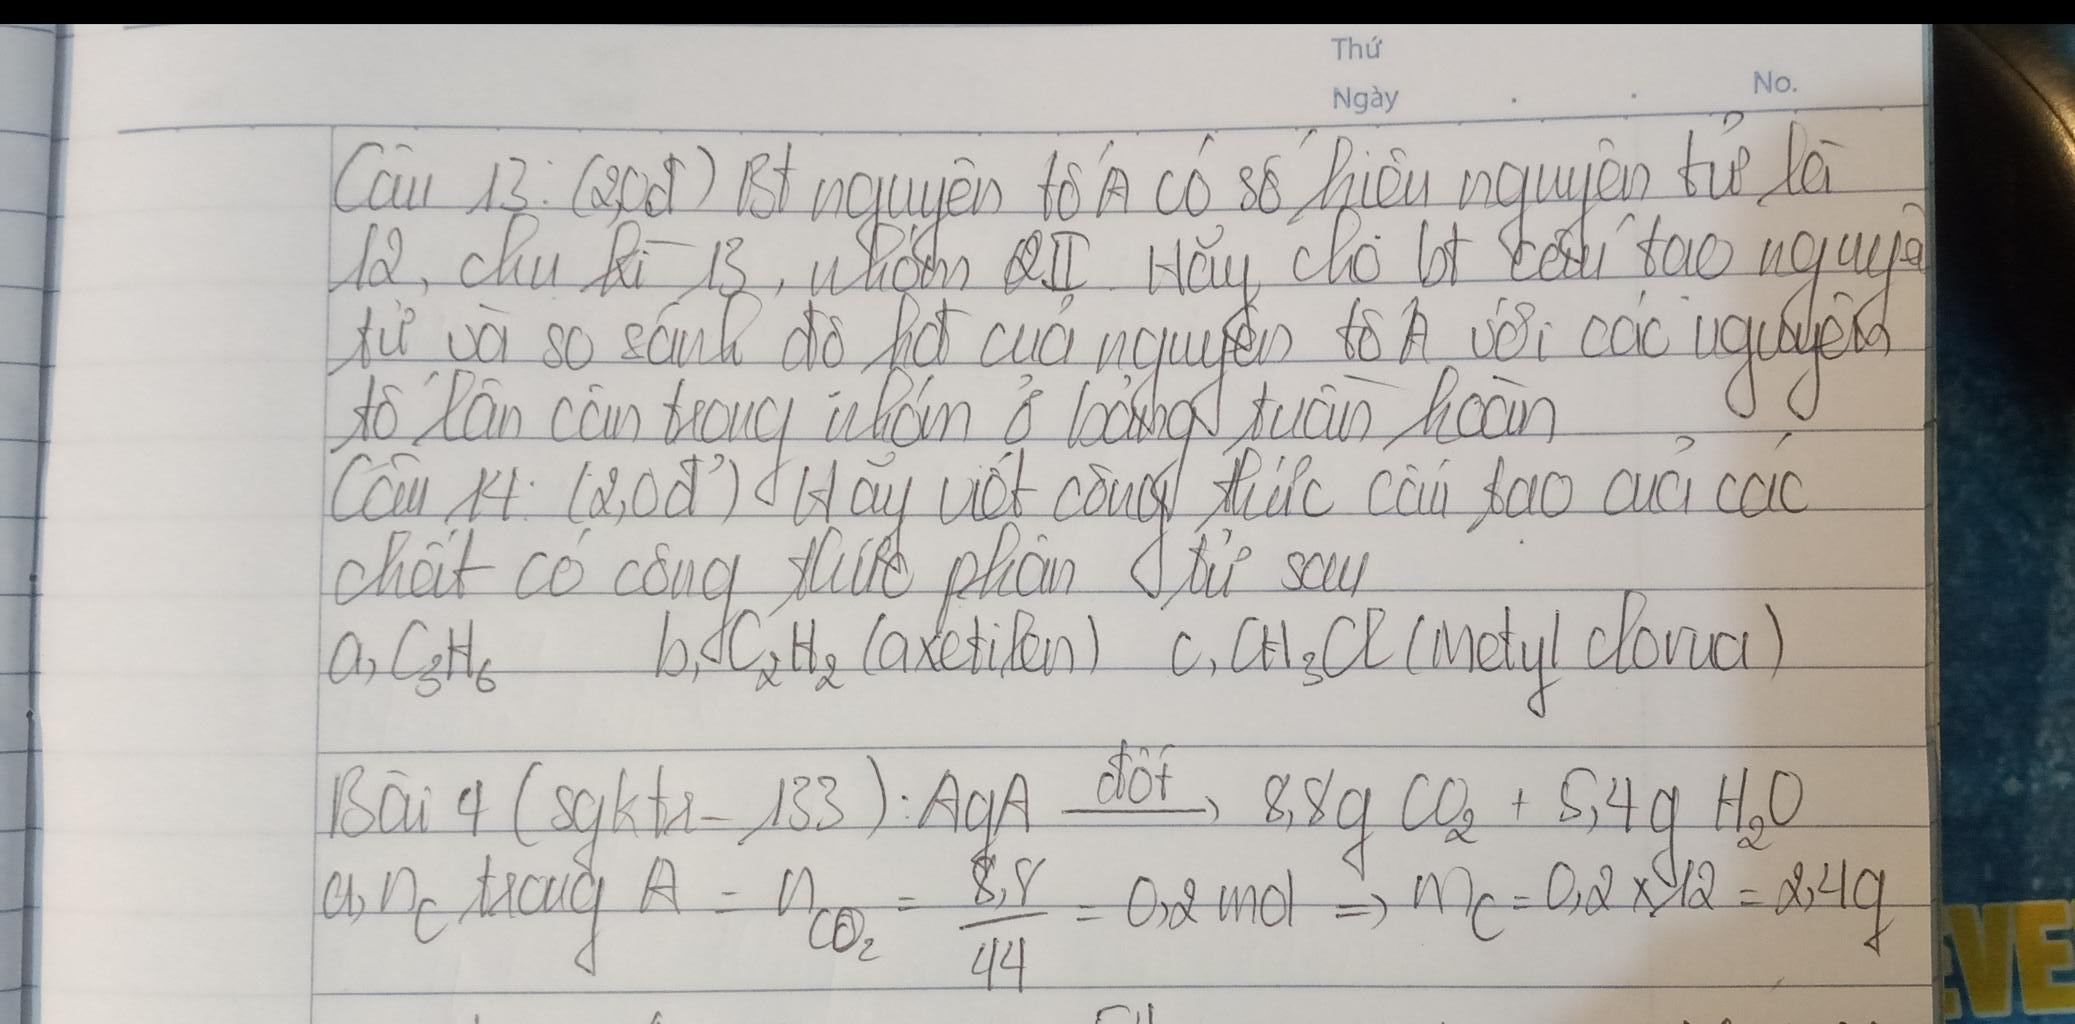 Thứ
Ngày
No.
Câu 13: (2,0đ) Bt nguyên tố A có số hiệu nguyên tử là
12, chu kì 13, nhóm II. Hãy cho bt cấu tạo nguyê
tử và so sánh độ hđ của nguyên tố A với các nguyên
tố lân cận trong nhóm ở bảng tuần hoàn
Câu 14: (2,0đ) Hãy viết công thức cấu tạo của các
chất có công thức phân tử sau
a, C3H6 b, C2H2 (axetilen) c, CH3Cl (Metyl clorua)
Bài 4 (sgktr - 133): AgA đốt → 8,8g CO2 + 5,4g H2O
a, nC trong A = nCO2 = 8,8/44 = 0,2 mol => mC = 0,2 x 12 = 2,4g
EVE